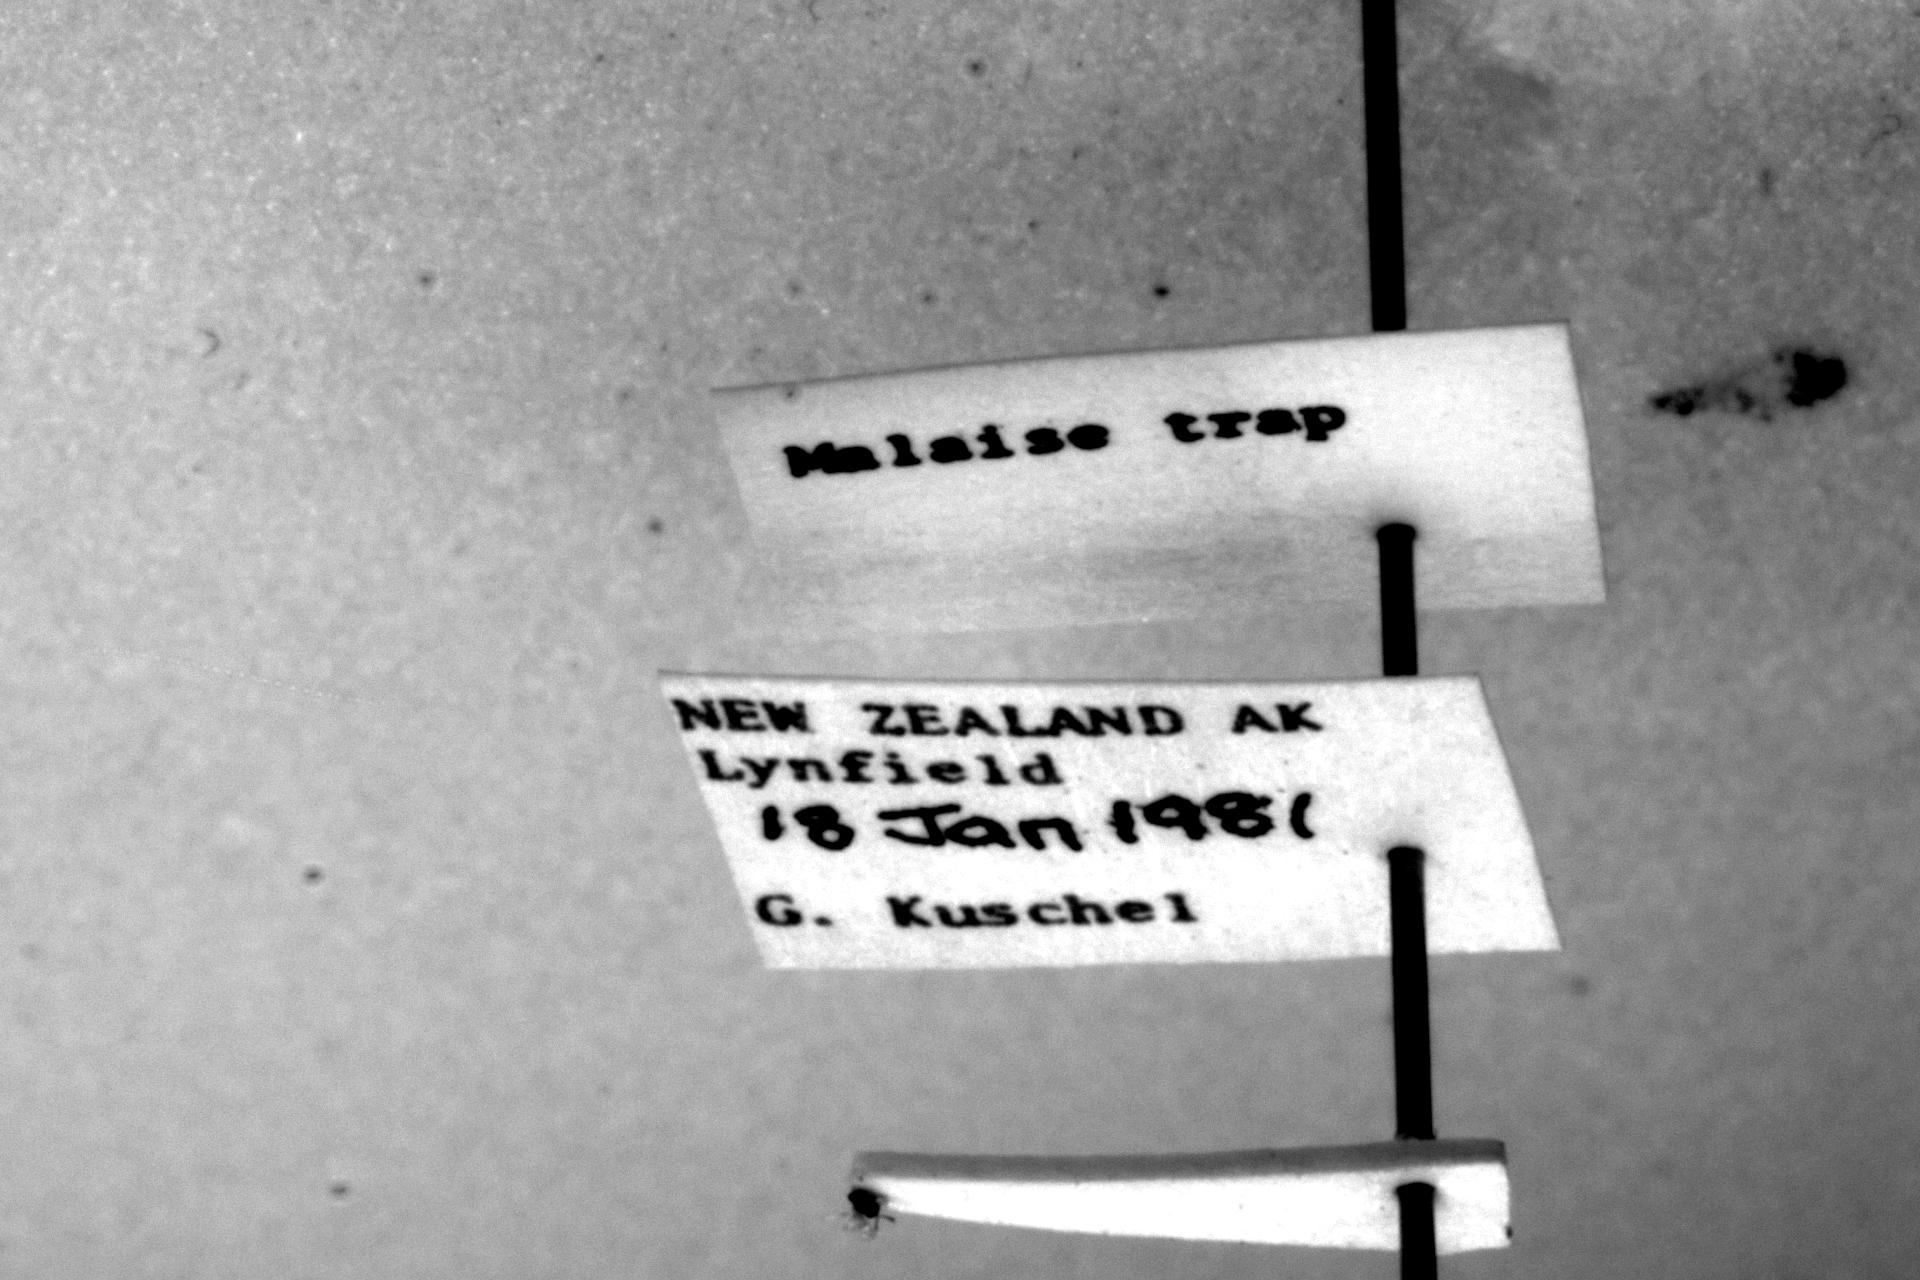 Malaise trap
NEW ZEALAND AK
Lynfield
18 Jan 1981
G. Kuschel